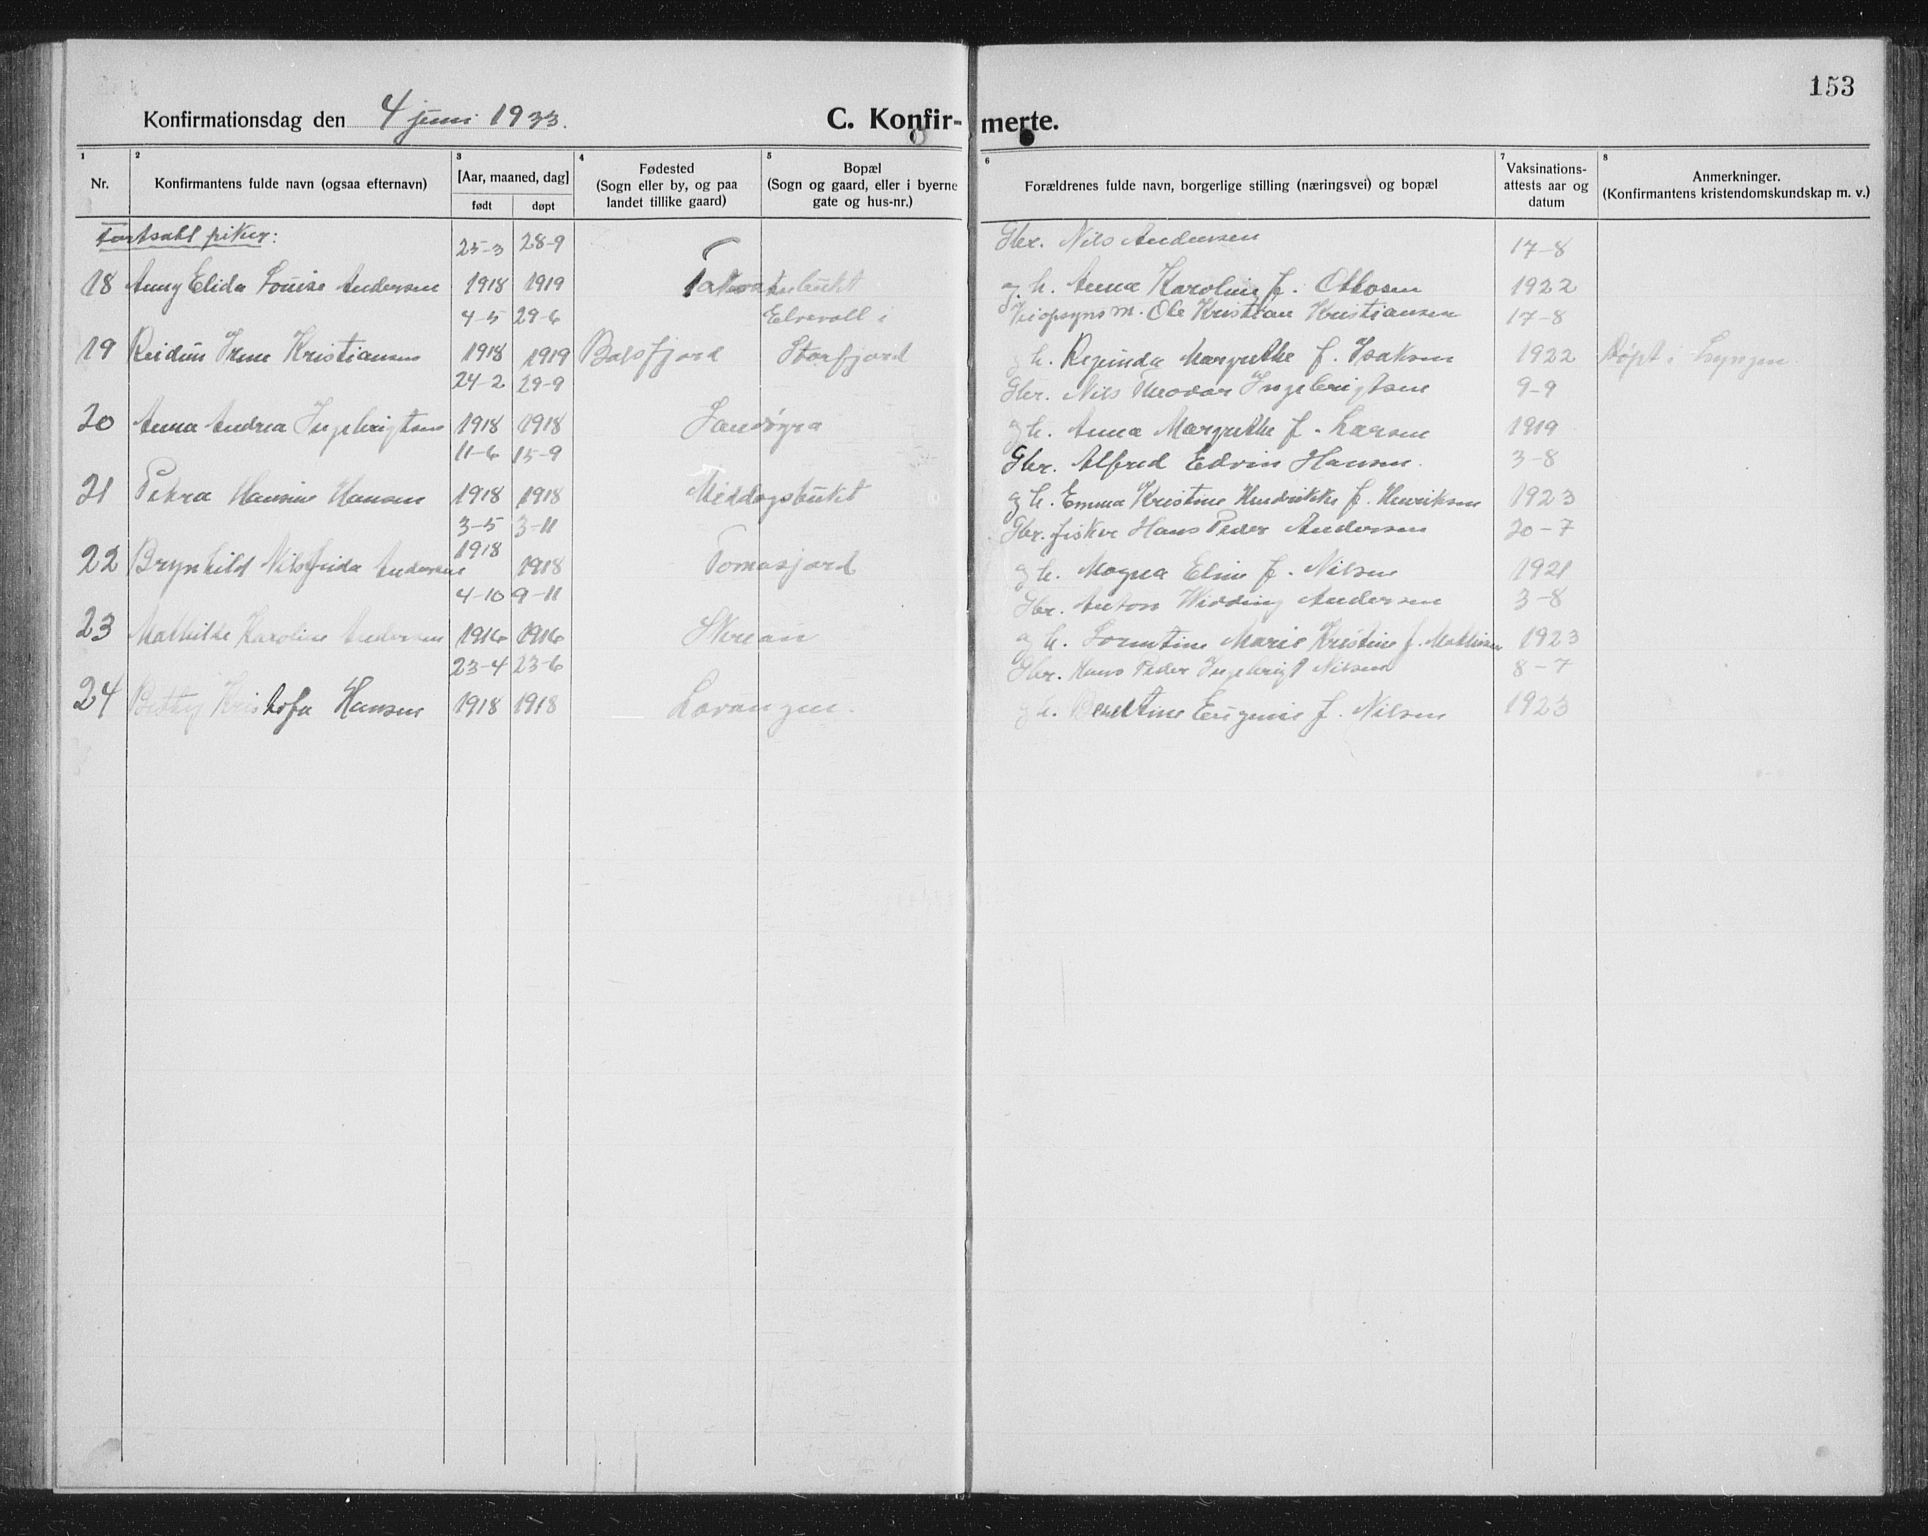 153
Konfirmationsdag den 4 juni 1933.
C. Konfir- merte.
1 2 3 4 5 6 7 8
Nr.
Konfirmantens fulde navn (ogsaa efternavn)
[Aar, maaned, dag]
født døpt
Fødested
(Sogn eller by, og paa
landet tillike gaard)
Bopæl
(Sogn og gaard, eller i byerne
gate og hus-nr.)
Forældrenes fulde navn, borgerlige stilling (næringsvei) og bopæl
Vaksinations-
attests aar og
datum
Anmerkninger.
(Konfirmantens kristendomskundskap m. v.)
Fortsatt piker: 25-3 28-9 Gbr. Nils Andersen 17-8
18 Anny Elida Louise Andersen 1918 1919 og h. Anna Karoline f. Ottosen 1922
4-5 29-6 Elvevoll i Veiopsyns m. Ole Kristian Kristiansen 17-8
19 Reidun Irene Kristiansen 1918 1919 Balsfjord Storfjord og h. Reginda Margrethe f. Isaksen 1922 Døpt i Lyngen
24-2 29-9 Gbr. Nils Theodor Ingebrigtsen 9-9
20 Anna Andrea Ingebrigtsen 1918 1918 Sandøyra og h. Anna Margrethe f. Larsen 1919
11-6 15-9 Gbr. Alfred Edvin Hansen. 3-8
21 Petra Hansine Hansen 1918 1918 Middagsbukt og h. Emma Kristine Hendrikke f. Henriksen 1923
3-5 3-11 Gbr. fisker Hans Peder Andersen 20-7
22 Brynhild Nilsfrida Andersen 1918 1918 Tomasjord og h. Magna Eline f. Nilsen 1921
4-10 9-11 Gbr. Anton Widding Andersen 3-8
23 Mathilde Karoline Andersen 1916 1916 og h. Marie Kristine f. 1923
23-4 23-6 Gbr. Hans Peder Ingebrigt Nilsen 8-7
24 Betty Kristofa Hansen 1918 1918 Lavangen. og h. Berettine Eugenie f. Nilsen 1923